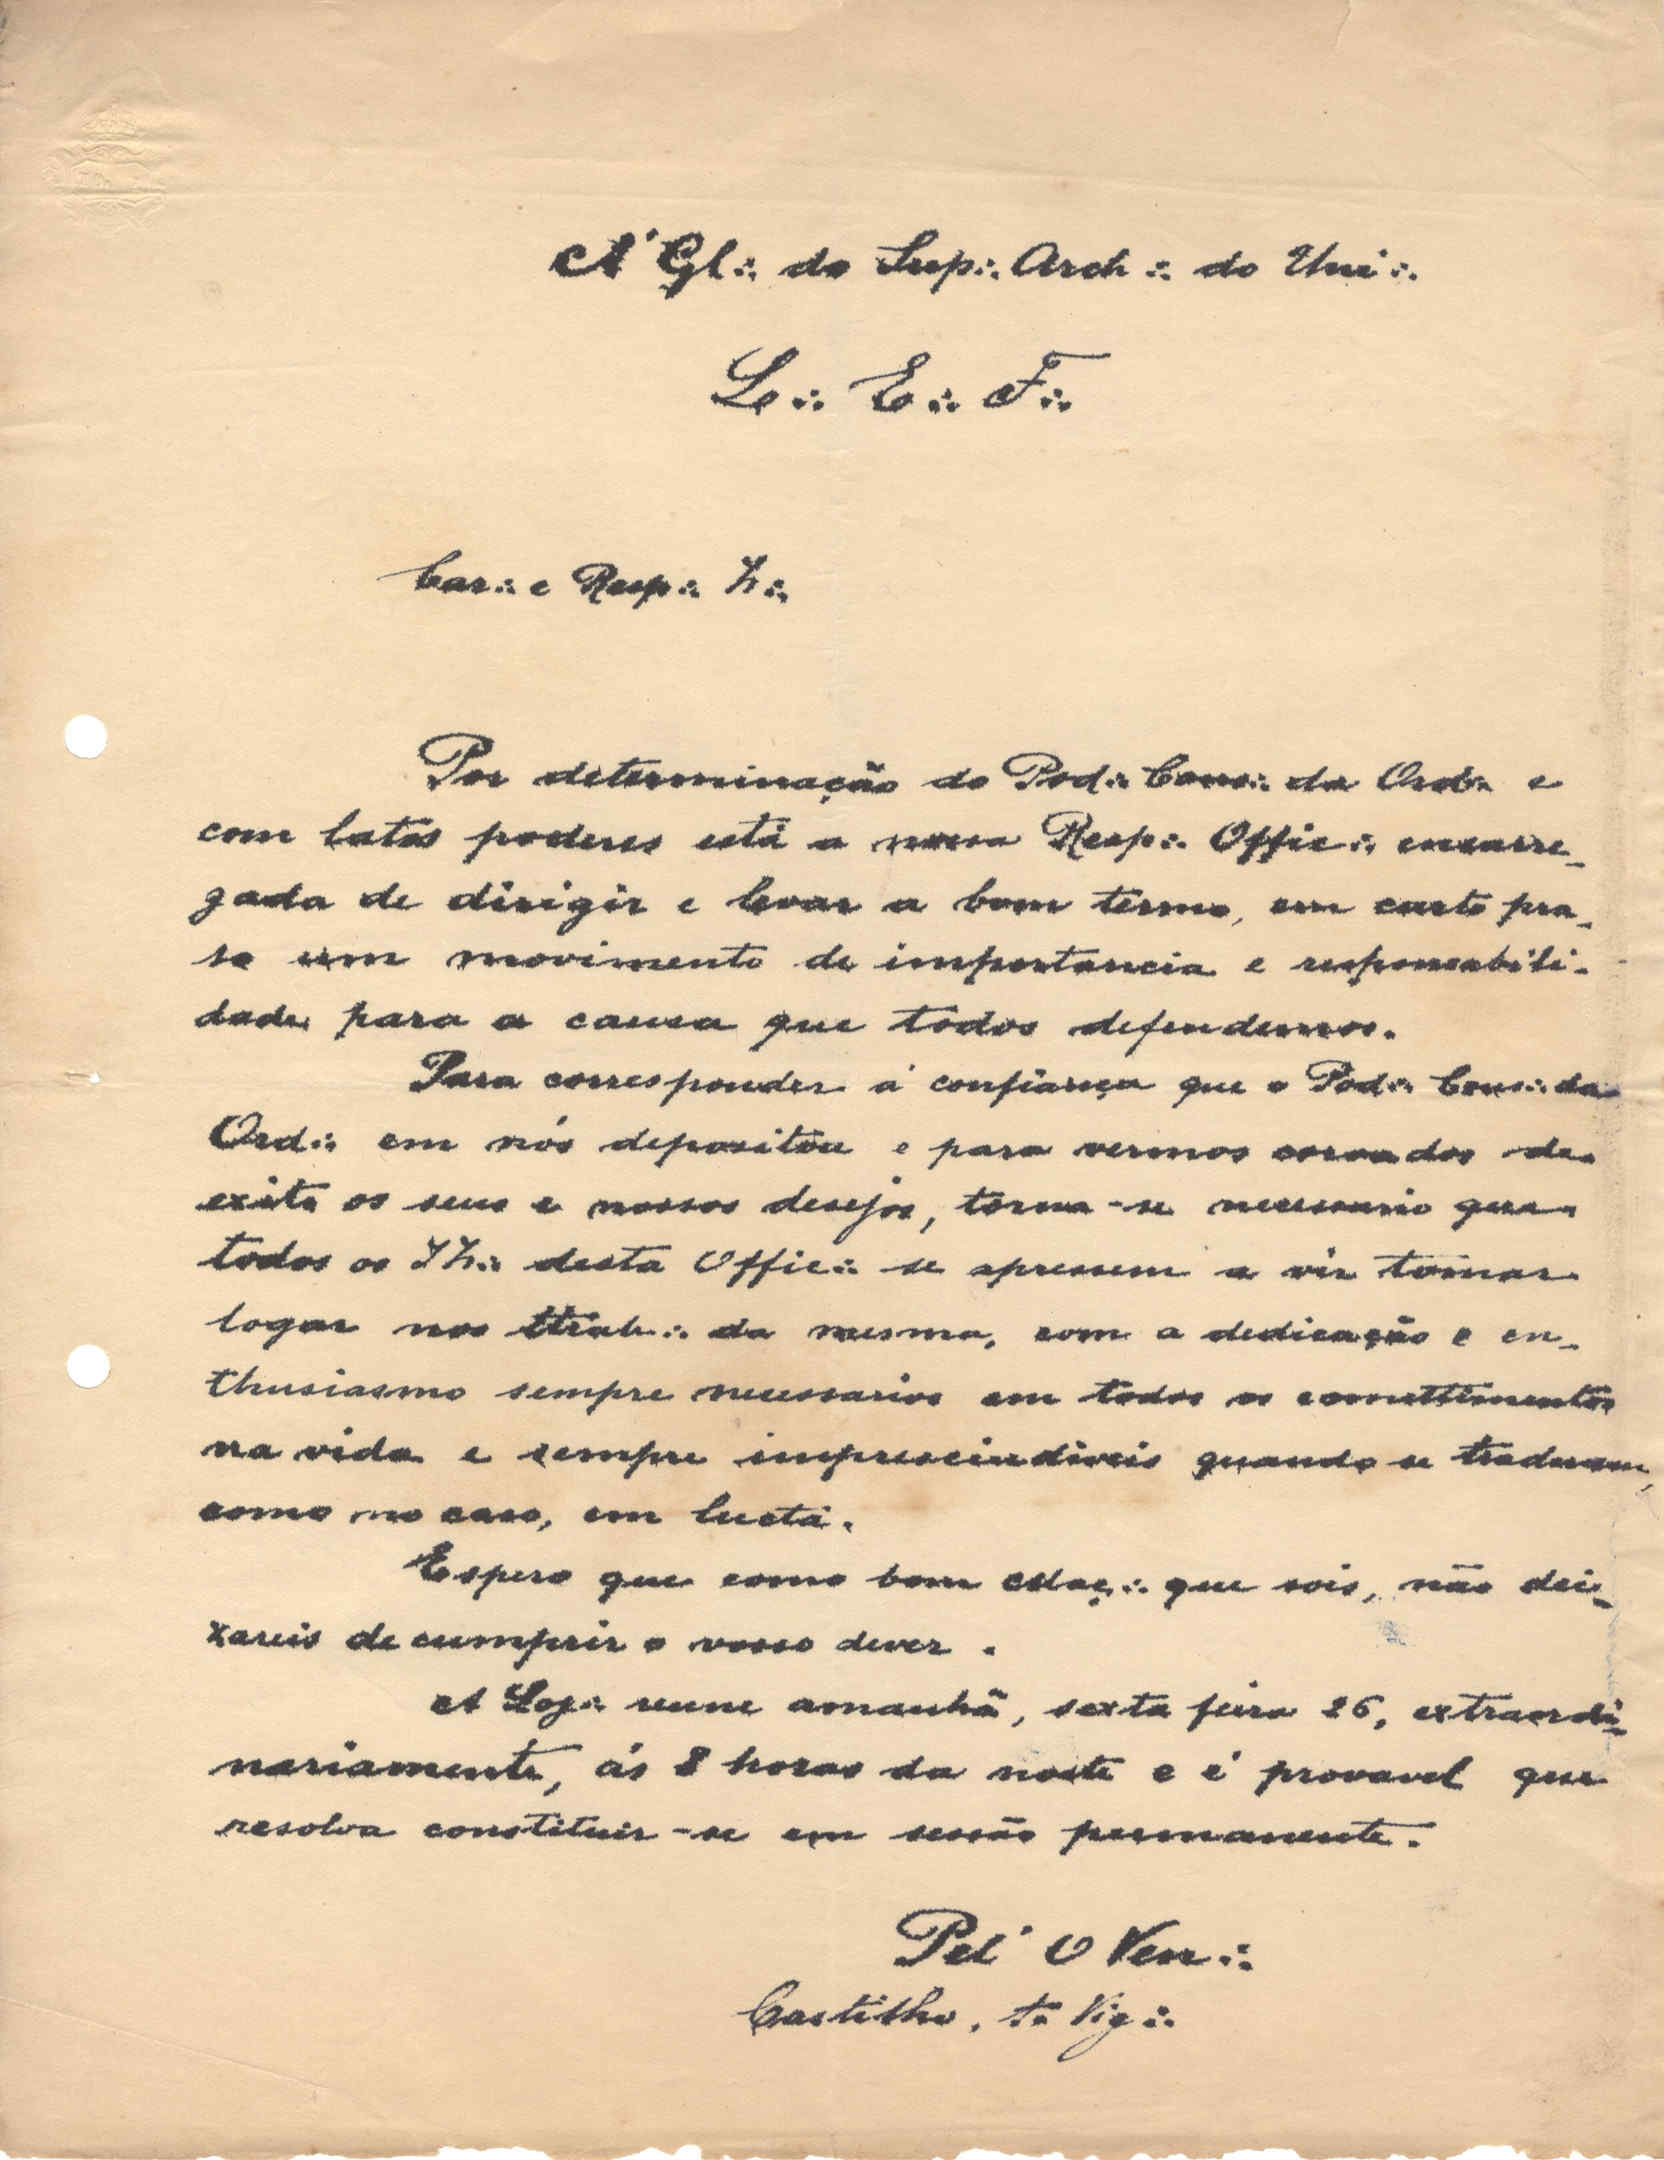 A' Gl∴ do Sup∴ Arch∴ do Uni∴
L∴ E∴ F∴
Car∴ e Resp∴ I∴
Por determinação do Pod∴ Cons∴ da Ord∴ e
com latos poderes está a nossa Resp∴ Offic∴ encarre-
gada de dirigir e levar a bom termo, em curto pra-
so um movimento de importancia e responsabili-
dade para a causa que todos defendemos.
Para corresponder á confiança que o Pod∴ Cons∴ da
Ord∴ em nós depositou e para vermos coroados de
exito os seus e nossos desejos, torna-se necessario que
todos os II∴ desta Offic∴ se apressem a vir tomar
logar nos ttrab∴ da mesma, com a dedicação e en-
thusiasmo sempre necessarios em todos os comettimentos
na vida e sempre imprescindiveis quando se traduzam,
como no caso, em lucta.
Espero que como bom que sois, não dei-
xareis de cumprir o vosso dever.
A Loj∴ reune amanhã, sexta feira 26, extraordi-
nariamente, ás 8 horas da noite e é provavel que
resolva constituir-se em sessão permanente.
Pel' O Ven∴
Castilho, Vig∴